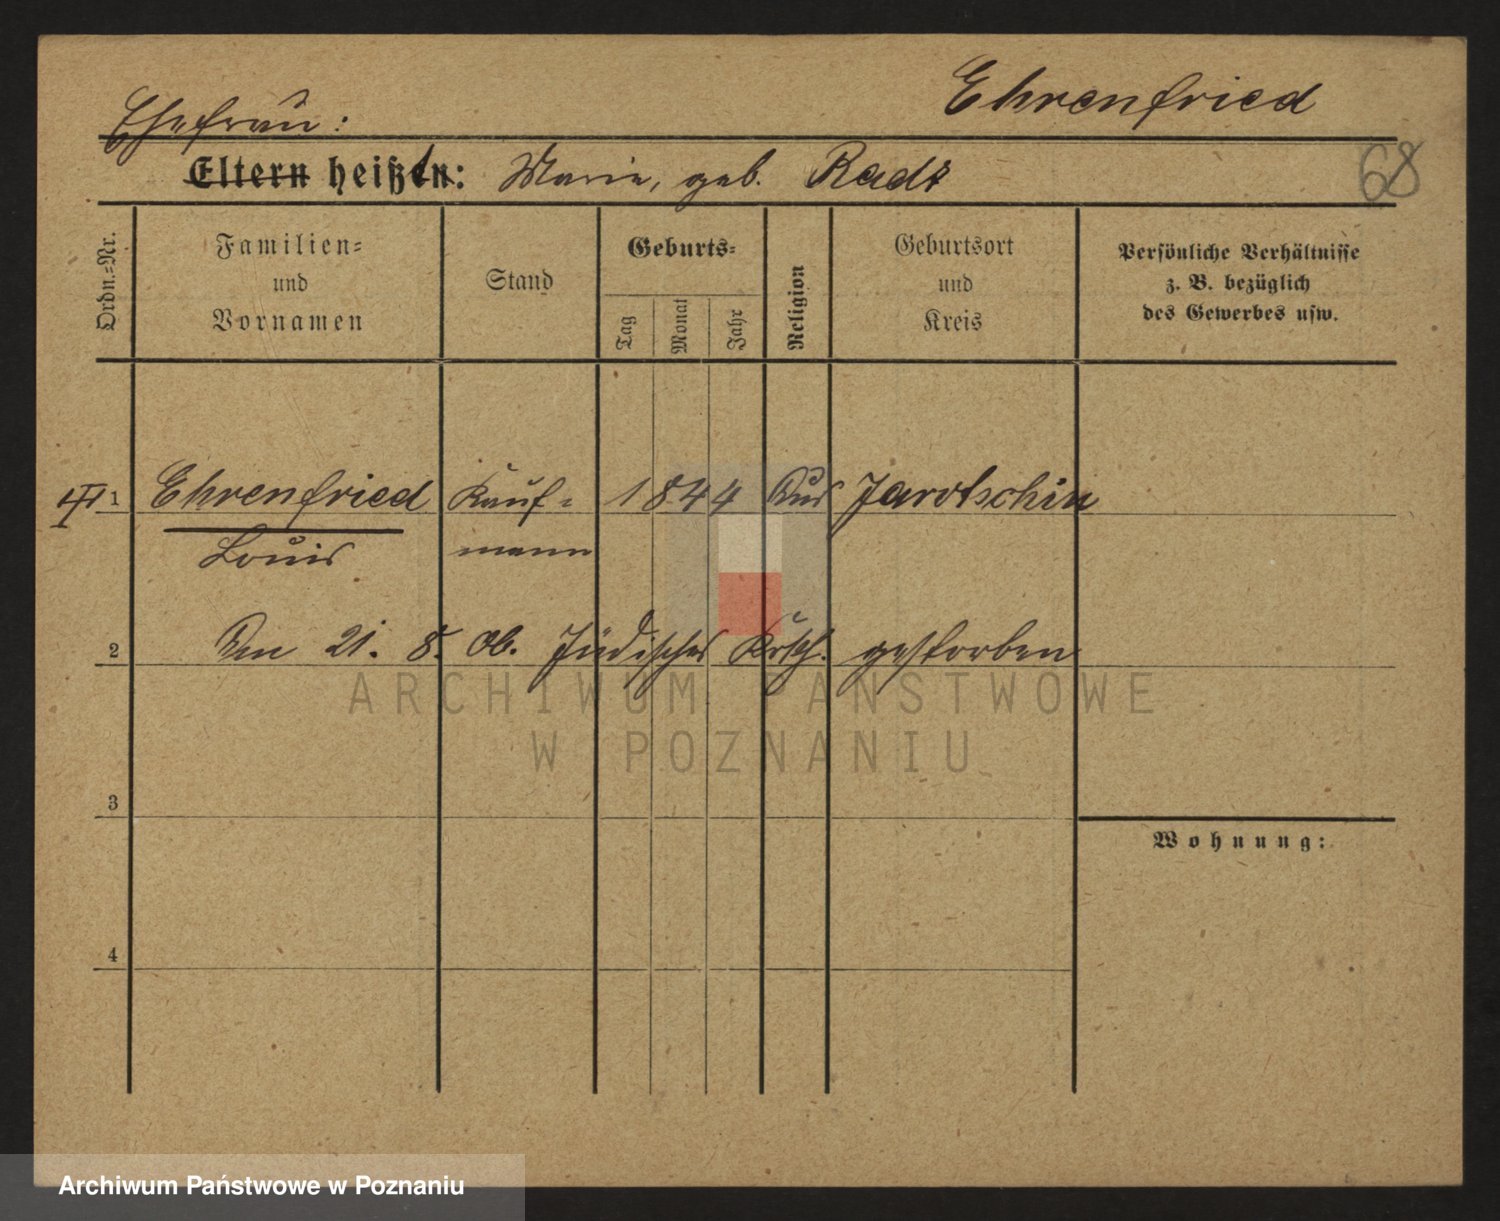 Ehrenfried
Ehefrau:
Eltern heißt: Marie, geb. Radt
68
Ordn.=Nr.
Familien=
und
Vornamen
Stand
Geburts=
Tag
Monat
Jahr
Religion
Geburtsort
und
Kreis
Persönliche Verhältnisse
z. B. bezüglich
des Gewerbes usw.
1 Ehrenfried Kauf= 1844 Jarotschin
Louis mann
2 21. 8. 06. gestorben
3
Wohnung:
4
ARCHIWUM PAŃSTWOWE
W POZNANIU
Archiwum Państwowe w Poznaniu